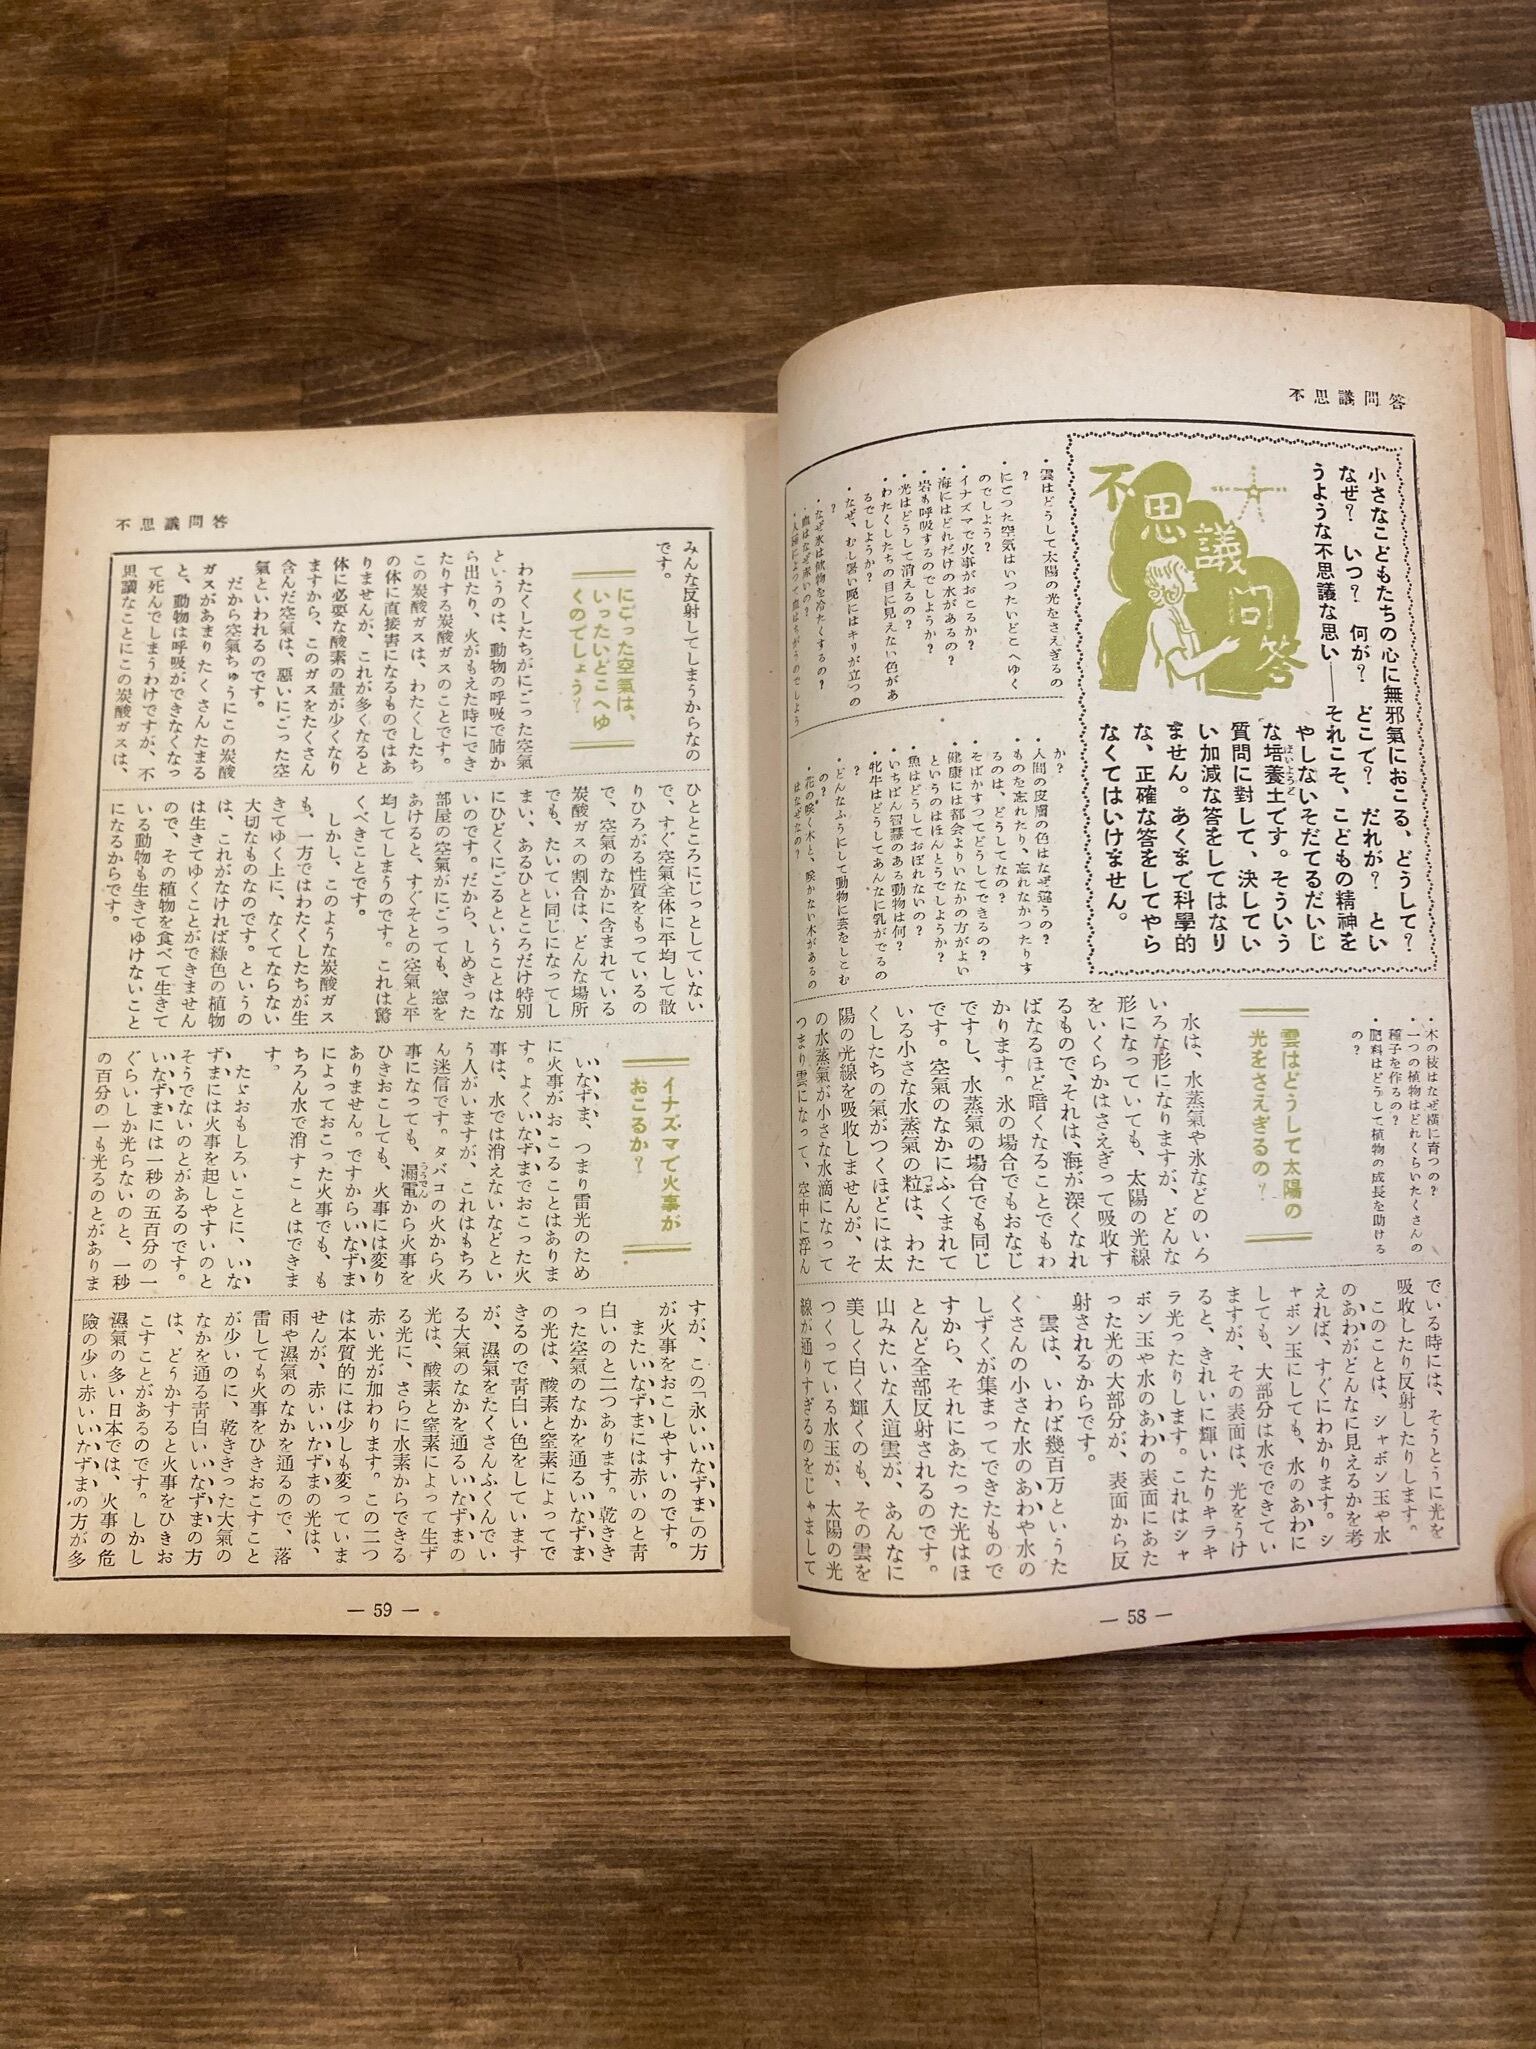 不思議問答
小さなこどもたちの心に無邪氣におこる、どうして?
なぜ? いつ? 何が? どこで? だれが? とい
うような不思議な思い――それこそ、こどもの精神を
やしないそだてるだいじ
な培養土です。そういう
ほいようど
質問に對して、決してい
い加減な答をしてはなり
ません。あくまで科學的
な、正確な答をしてやら
なくてはいけません。
不思議問答
・雲はどうして太陽の光をさえぎるの
?
・にごつた空気はいつたいどこへゆく
のでしよう?
・イナズマで火事がおこるか?
・海にはどれだけの水があるの?
・岩も呼吸するのでしようか?
・光はどうして消えるの?
・わたくしたちの目に見えない色があ
るでしようか?
・なぜ、むし暑い晩にはキリが立つの
?
・なぜ氷は飮物を冷たくするの?
・血はなぜ赤いの?
・人種によつて血はちがうのでしよう
か?
・人間の皮膚の色はなぜ違うの?
・ものを忘れたり、忘れなかつたりす
るのは、どうしてなの?
・そばかすつてどうしてできるの?
・健康には都会よりいなかの方がよい
というのはほんとうでしようか?
・魚はどうしておぼれないの?
・いちばん智慧のある動物は何?
・牝牛はどうしてあんなに乳がでるの
?
・どんなふうにして動物に芸をしこむ
の?
・花の咲く木と、咲かない木があるの
はなぜなの?
・木の枝はなぜ橫に育つの?
・一つの植物はどれくらいたくさんの
種子を作るの?
・肥料はどうして植物の成長を助ける
の?
雲はどうして太陽の
光をさえぎるの?
水は、水蒸氣や氷などのいろ
いろな形になりますが、どんな
形になっていても、太陽の光線
をいくらかはさえぎって吸收す
るもので、それは、海が深くなれ
ばなるほど暗くなることでもわ
かります。氷の場合でもおなじ
ですし、水蒸氣の場合でも同じ
です。空氣のなかにふくまれて
いる小さな水蒸氣の粒は、わた
つぶ
くしたちの氣がつくほどには太
陽の光線を吸收しませんが、そ
の水蒸氣が小さな水滴になって
つまり雲になって、空中に浮ん
でいる時には、そうとうに光を
吸收したり反射したりします。
このことは、シャボン玉や水
のあわがどんなに見えるかを考
えれば、すぐにわかります。シ
ャボン玉にしても、水のあわに
しても、大部分は水でできてい
ますが、その表面は、光をうけ
ると、きれいに輝いたりキラキ
ラ光ったりします。これはシャ
ボン玉や水のあわの表面にあた
った光の大部分が、表面から反
射されるからです。
雲は、いわば幾百万というた
くさんの小さな水のあわや水の
しずくが集まってできたもので
すから、それにあたった光はほ
とんど全部反射されるのです。
山みたいな入道雲が、あんなに
美しく白く輝くのも、その雲を
つくっている水玉が、太陽の光
線が通りすぎるのをじゃまして
― 58 ―
不思議問答
みんな反射してしまうからなの
です。
にごった空氣は、
いったいどこへゆ
くのでしょう?
わたくしたちがにごった空氣
というのは、動物の呼吸で肺か
ら出たり、火がもえた時にでき
たりする炭酸ガスのことです。
この炭酸ガスは、わたくしたち
の体に直接害になるものではあ
りませんが、これが多くなると
体に必要な酸素の量が少くなり
ますから、このガスをたくさん
含んだ空氣は、惡いにごった空
氣といわれるのです。
だから空氣ちゅうにこの炭酸
ガスがあまりたくさんたまる
と、動物は呼吸ができなくなっ
て死んでしまうわけですが、不
思議なことにこの炭酸ガスは、
ひとところにじっとしていない
で、すぐ空氣全体に平均して散
りひろがる性質をもっているの
で、空氣のなかに含まれている
炭酸ガスの割合は、どんな場所
でも、たいてい同じになってし
まい、あるひとところだけ特別
にひどくにごるということはな
いのです。だから、しめきった
部屋の空氣がにごっても、窓を
あけると、すぐそとの空氣と平
均してしまうのです。これは驚
くべきことです。
しかし、このような炭酸ガス
も、一方ではわたくしたちが生
きてゆく上に、なくてならない
大切なものなのです。というの
は、これがなければ綠色の植物
は生きてゆくことができません
ので、その植物を食べて生きて
いる動物も生きてゆけないこと
になるからです。
イナズマで火事が
おこるか?
いなずま、つまり雷光のため
に火事がおこることはありま
す。よくいなずまでおこった火
事は、水では消えないなどとい
う人がいますが、これはもちろ
ん迷信です。タバコの火から火
事になっても、漏電から火事を
ろうでん
ひきおこしても、火事には変り
ありません。ですからいなずま
によっておこった火事でも、も
ちろん水で消すことはできま
す。
たゞおもしろいことに、いな
ずまには火事を起しやすいのと
そうでないのとがあるのです。
いなずまには一秒の五百分の一
ぐらいしか光らないのと、一秒
の百分の一も光るのとがありま
すが、この「永いいなずま」の方
が火事をおこしやすいのです。
またいなずまには赤いのと青
白いのと二つあります。乾きき
った空氣のなかを通るいなずま
の光は、酸素と窒素によってで
きるので青白い色をしています
が、濕氣をたくさんふくんでい
る大氣のなかを通るいなずまの
光は、酸素と窒素によって生ず
る光に、さらに水素からできる
赤い光が加わります。この二つ
は本質的には少しも変っていま
せんが、赤いいなずまの光は、
雨や濕氣のなかを通るので、落
雷しても火事をひきおこすこと
が少いのに、乾ききった大氣の
なかを通る青白いいなずまの方
は、どうかすると火事をひきお
こすことがあるのです。しかし
濕氣の多い日本では、火事の危
險の少い赤いいなずまの方が多
― 59 ―